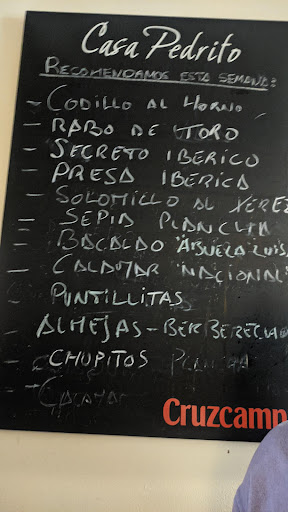 Casa Pedrito
RECOMENDAMOS ESTA SEMANA:
- CODILLO AL HORNO
- RABO DE TORO
- SECRETO IBERICO
- PRESA IBERICA
- SOLOMILLO AL XEREZ
- SEPIA PLANCHA
- BACALAO "ABUELA LUISA
- CALAMAR "NACIONAL"
PUNTILLITAS
ALMEJAS - BERBERECHOS
- CHOPITOS PLANCHA
- CALAMAR
Cruzcamp